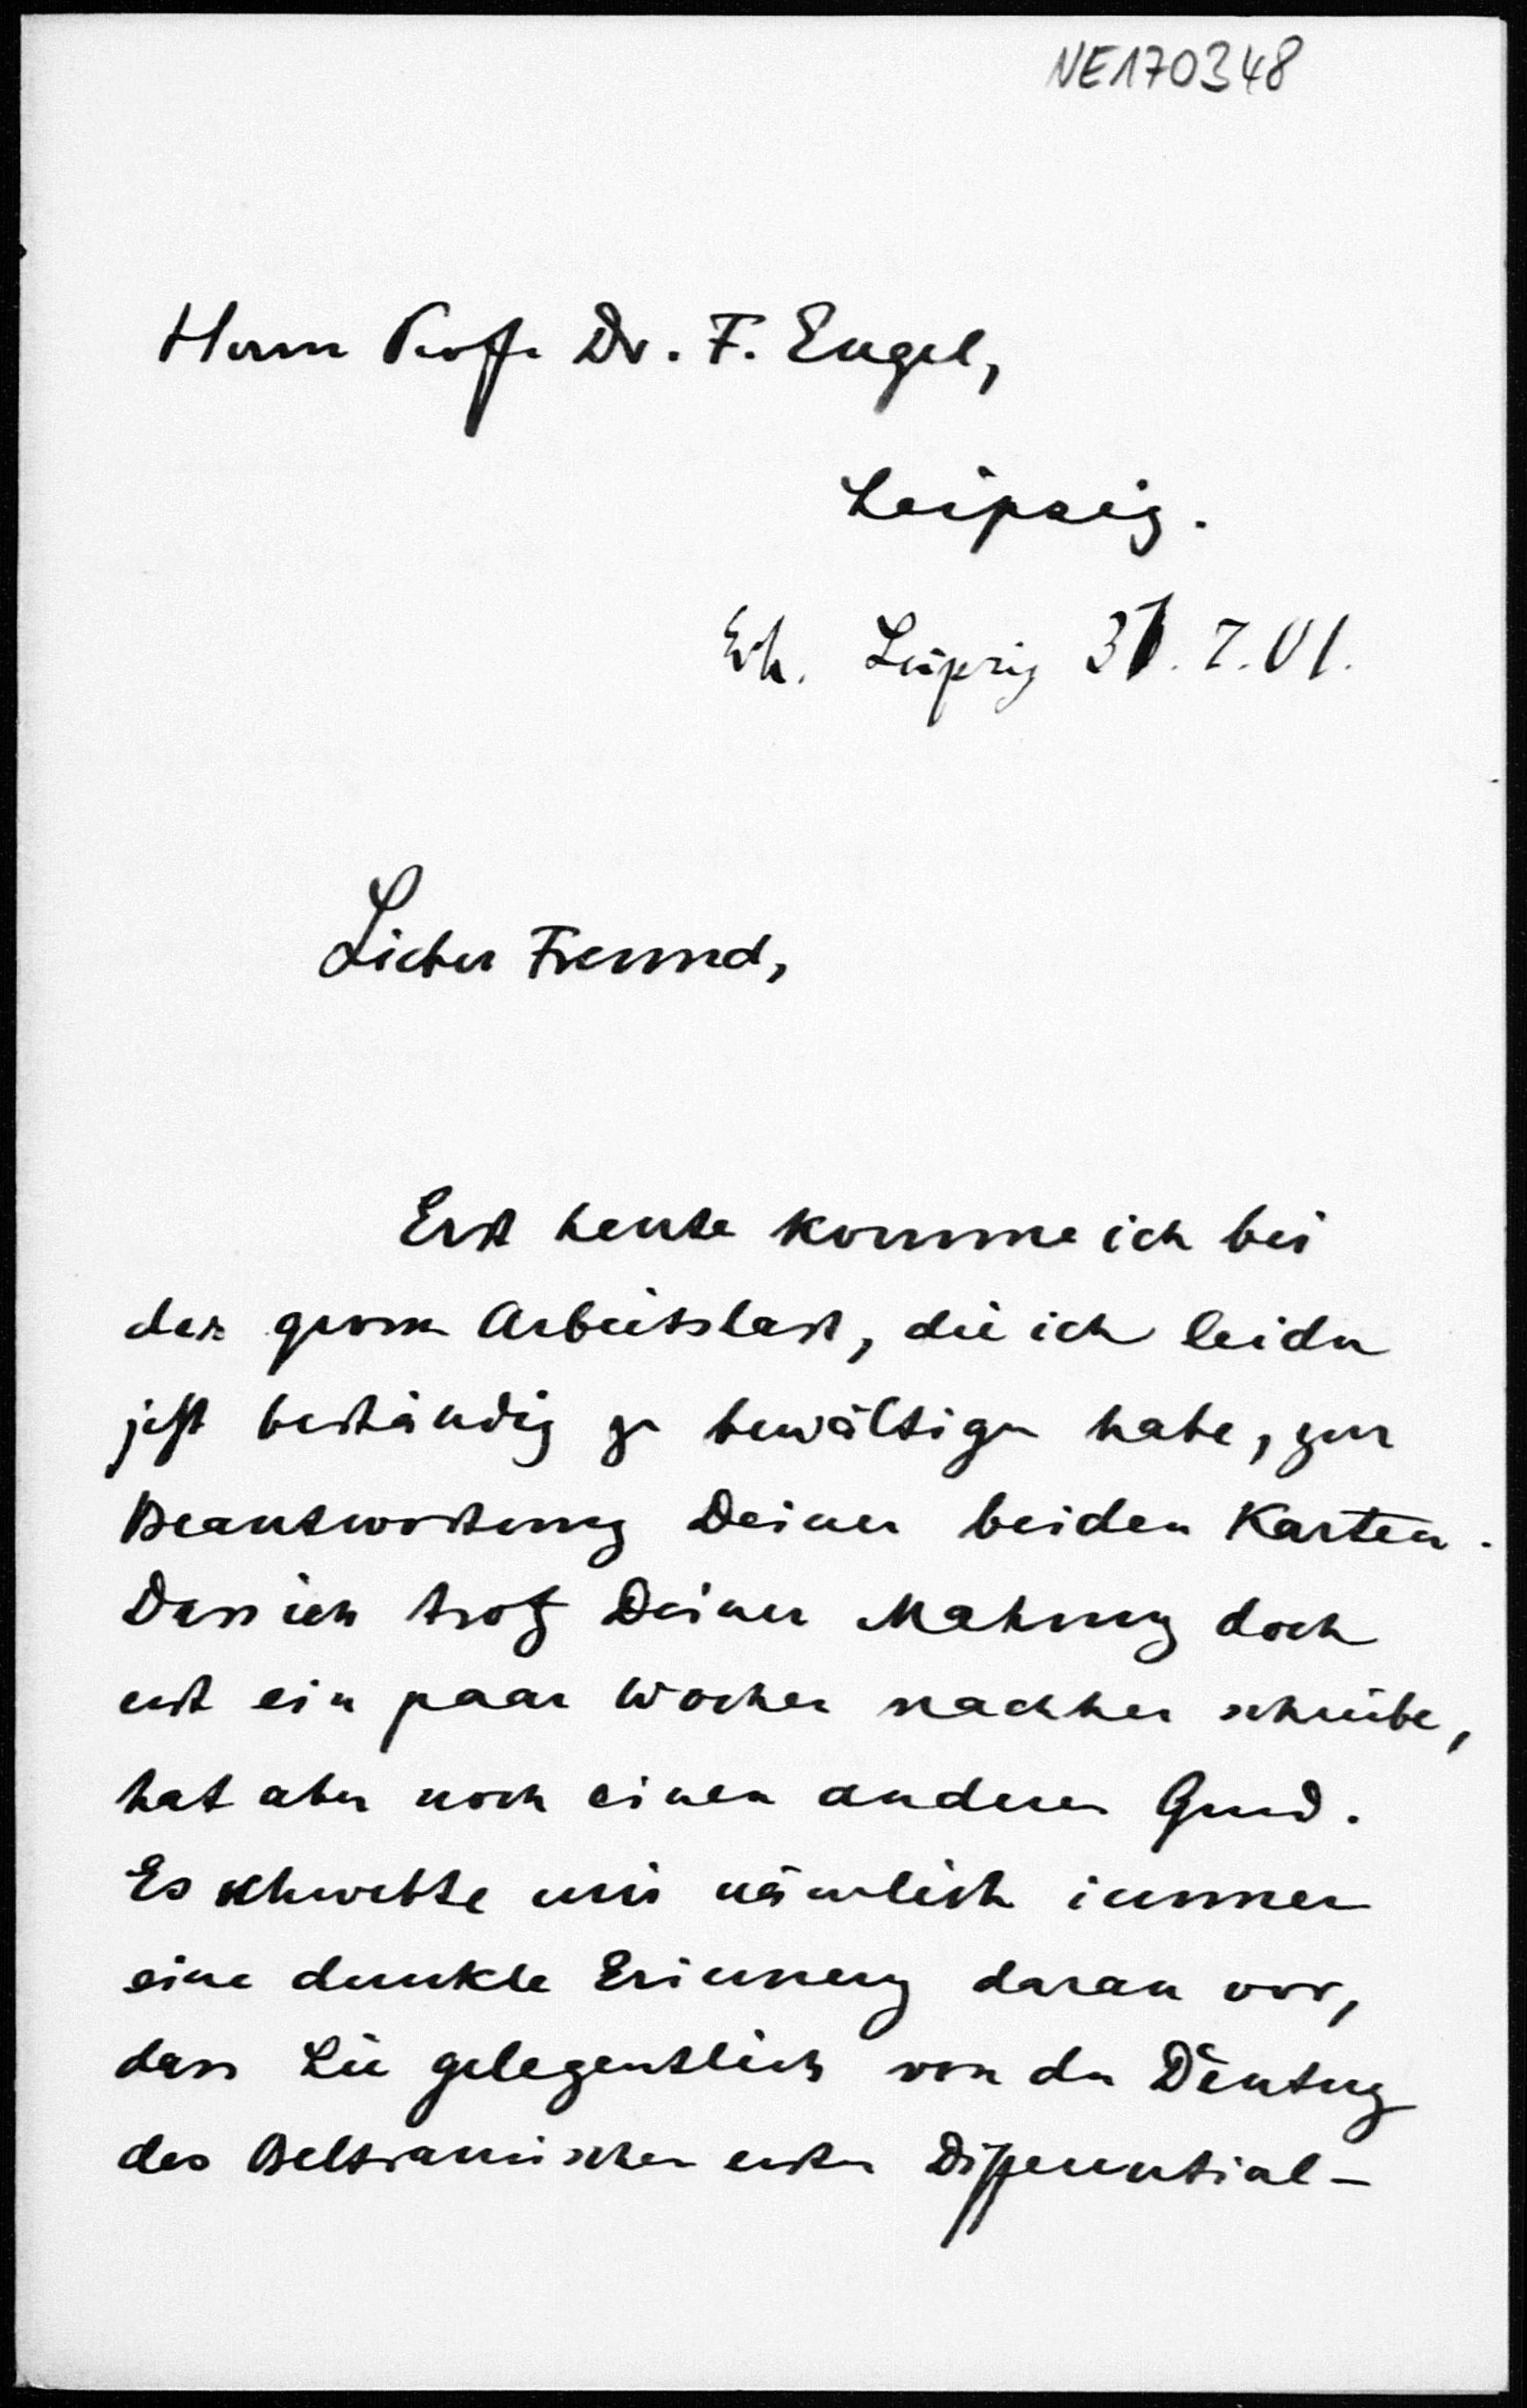 NE170348
Herrn Prof. Dr. F. Engel,
Leipzig.
Erh. Leipzig 31. 7. 01.
Lieber Freund,
Erst heute komme ich bei
der grossen Arbeitslast, die ich leider
jetzt beständig zu bewältigen habe, zur
Beantwortung Deiner beiden Karten.
Dass ich trotz Deiner Mahnung doch
erst ein paar Wochen nachher schreibe,
hat aber noch einen anderen Grund.
Es schwebte mir nämlich immer
eine dunkle Erinnerung daran vor,
dass Lie gelegentlich von der Deutung
des Beltramischen ersten Differential-